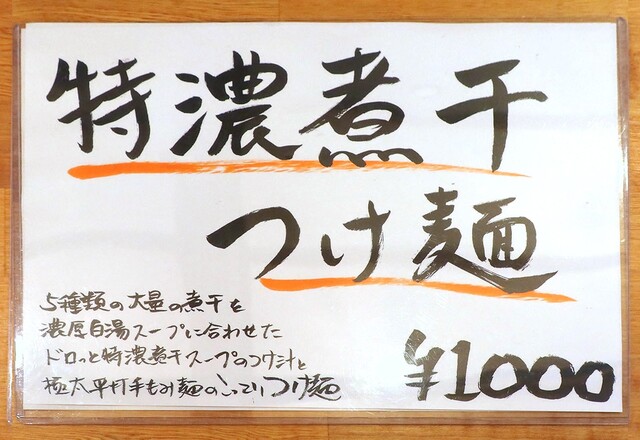 特濃煮干
つけ麺
5種類の大量の煮干を
濃厚白湯スープに合わせた
ドロッと特濃煮干スープのつけ汁と
極太平打手もみ麺のこってりつけ麺
¥1000